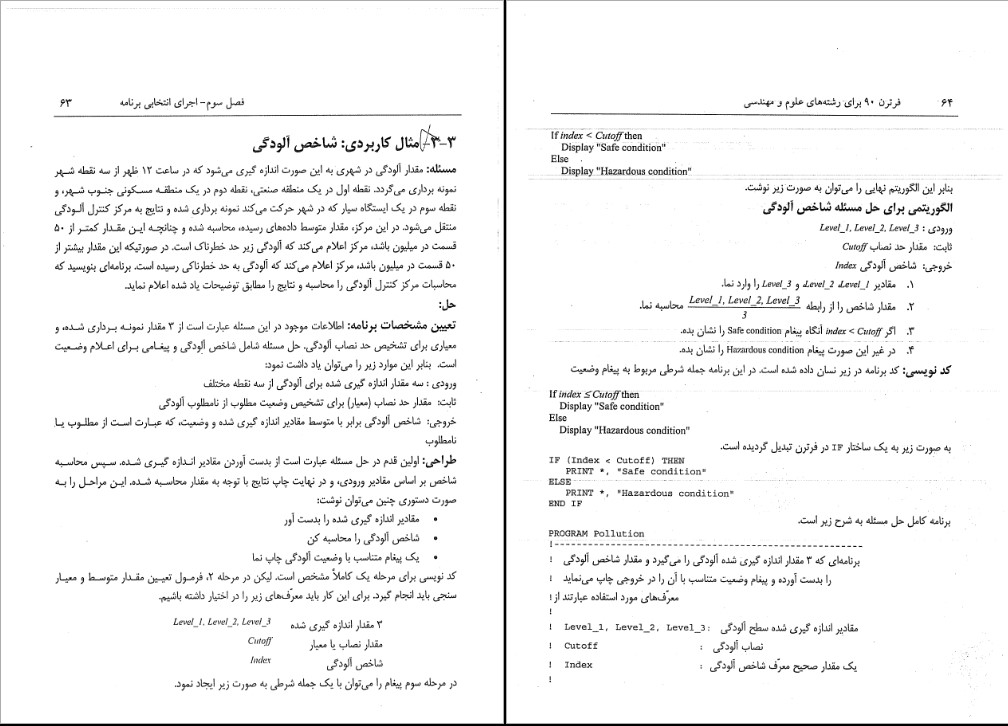 فصل سوم- اجرای انتخابی برنامه ۶۳
۳-۳- مثال کاربردی: شاخص آلودگی
مسئله: مقدار آلودگی در شهری به این صورت اندازه گیری می‌شود که در ساعت ۱۲ ظهر از سه نقطه شهر
نمونه برداری می‌گردد. نقطه اول در یک منطقه صنعتی، نقطه دوم در یک منطقه مسکونی جنوب شهر، و
نقطه سوم در یک ایستگاه سیار که در شهر حرکت می‌کند نمونه برداری شده و نتایج به مرکز کنترل آلودگی
منتقل می‌شود. در این مرکز، مقدار متوسط داده‌های رسیده، محاسبه شده و چنانچه این مقدار کمتر از ۵۰
قسمت در میلیون باشد، مرکز اعلام می‌کند که آلودگی زیر حد خطرناک است. در صورتیکه این مقدار بیشتر از
۵۰ قسمت در میلیون باشد، مرکز اعلام می‌کند که آلودگی به حد خطرناکی رسیده است. برنامه‌ای بنویسید که
محاسبات مرکز کنترل آلودگی را محاسبه و نتایج را مطابق توضیحات یاد شده اعلام نماید.
حل:
تعیین مشخصات برنامه: اطلاعات موجود در این مسئله عبارت است از ۳ مقدار نمونه برداری شده، و
معیاری برای تشخیص حد نصاب آلودگی. حل مسئله شامل شاخص آلودگی و پیغامی برای اعلام وضعیت
است. بنابر این موارد زیر را می‌توان یاد داشت نمود:
ورودی : سه مقدار اندازه گیری شده برای آلودگی از سه نقطه مختلف
ثابت: مقدار حد نصاب (معیار) برای تشخیص وضعیت مطلوب از نامطلوب آلودگی
خروجی: شاخص آلودگی برابر با متوسط مقادیر اندازه گیری شده و وضعیت، که عبارت است از مطلوب یا
نامطلوب
طراحی: اولین قدم در حل مسئله عبارت است از بدست آوردن مقادیر اندازه گیری شده. سپس محاسبه
شاخص بر اساس مقادیر ورودی، و در نهایت چاپ نتایج با توجه به مقدار محاسبه شده. این مراحل را به
صورت دستوری چنین می‌توان نوشت:
• مقادیر اندازه گیری شده را بدست آور
• شاخص آلودگی را محاسبه کن
• یک پیغام متناسب با وضعیت آلودگی چاپ نما
کد نویسی برای مرحله یک کاملاً مشخص است. لیکن در مرحله ۲، فرمول تعیین مقدار متوسط و معیار
سنجی باید انجام گیرد. برای این کار باید معرّف‌های زیر را در اختیار داشته باشیم.
۳ مقدار اندازه گیری شده Level_1, Level_2, Level_3
مقدار نصاب یا معیار Cutoff
شاخص آلودگی Index
در مرحله سوم پیغام را می‌توان با یک جمله شرطی به صورت زیر ایجاد نمود.
۶۴ فرترن ۹۰ برای رشته‌های علوم و مهندسی
If index < Cutoff then
Display "Safe condition"
Else
Display "Hazardous condition"
بنابر این الگوریتم نهایی را می‌توان به صورت زیر نوشت.
الگوریتمی برای حل مسئله شاخص آلودگی
ورودی : Level_1, Level_2, Level_3
ثابت: مقدار حد نصاب Cutoff
خروجی: شاخص آلودگی Index
۱. مقادیر Level_1، Level_2، و Level_3 را وارد نما.
۲. مقدار شاخص را از رابطه Level_1, Level_2, Level_3 / 3 محاسبه نما.
۳. اگر index < Cutoff آنگاه پیغام Safe condition را نشان بده.
۴. در غیر این صورت پیغام Hazardous condition را نشان بده.
کد نویسی: کد برنامه در زیر نسان داده شده است. در این برنامه جمله شرطی مربوط به پیغام وضعیت
If index ≤ Cutoff then
Display "Safe condition"
Else
Display "Hazardous condition"
به صورت زیر به یک ساختار IF در فرترن تبدیل گردیده است.
IF (Index < Cutoff) THEN
PRINT *, "Safe condition"
ELSE
PRINT *, "Hazardous condition"
END IF
برنامه کامل حل مسئله به شرح زیر است.
PROGRAM Pollution
!-----------------------------------------------------
! برنامه‌ای که ۳ مقدار اندازه گیری شده آلودگی را می‌گیرد و مقدار شاخص آلودگی
! را بدست آورده و پیغام وضعیت متناسب با آن را در خروجی چاپ می‌نماید
! معرّف‌های مورد استفاده عبارتند از:
!
! Level_1, Level_2, Level_3 : مقادیر اندازه گیری شده سطح آلودگی
! Cutoff : نصاب آلودگی
! Index : یک مقدار صحیح معرّف شاخص آلودگی
!